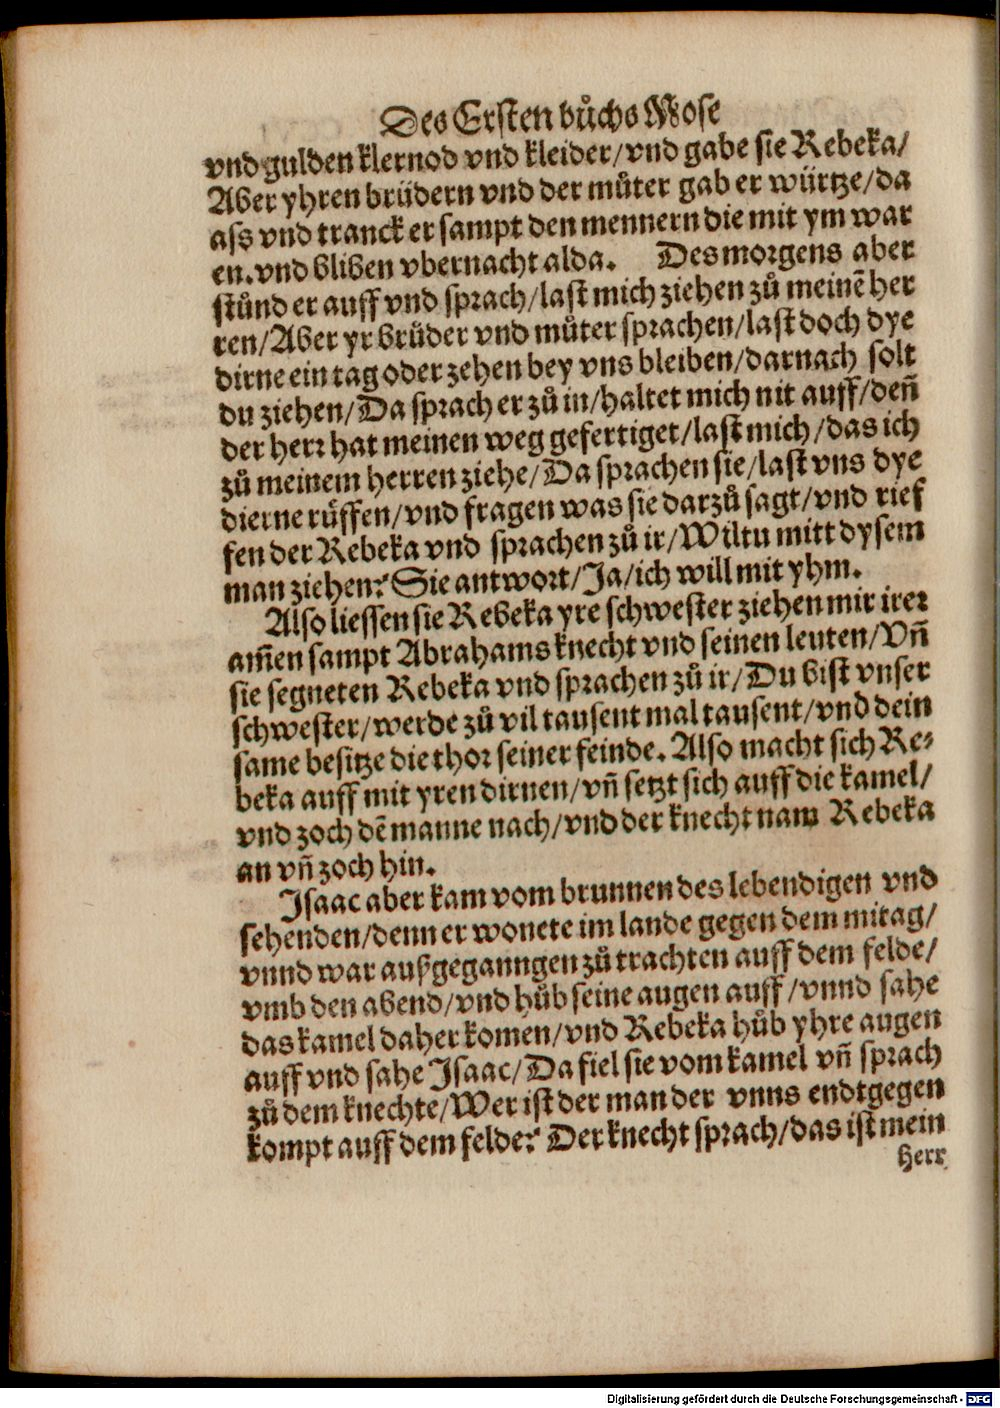 Des Ersten bůchs Mose
vnd gulden klernod vnd kleider/vnd gabe sie Rebeka/
Aber yhren brüdern vnd der můter gab er würtze/da
ass vnd tranck er sampt den mennern die mit ym war
en. vnd bliben vbernacht alda. Des morgens aber
stůnd er auff vnd sprach/last mich ziehen zů meinē her
ren/Aber yr brůder vnd můter sprachen/last doch dye
dirne ein tag oder zehen bey vns bleiben/darnach solt
du ziehen/Da sprach er zů in/haltet mich nit auff/deñ
der herr hat meinen weg gefertiget/last mich/das ich
zů meinem herren ziehe/Da sprachen sie/last vns dye
dierne růffen/vnd fragen was sie darzů sagt/vnd rief
fen der Rebeka vnd sprachen zů ir/Wiltu mitt dysem
man ziehen? Sie antwort/Ja/ich will mit yhm.
Also liessen sie Rebeka yre schwester ziehen mir irer
am̃en sampt Abrahams knecht vnd seinen leuten/Vñ
sie segneten Rebeka vnd sprachen zů ir/Du bist vnser
schwester/werde zů vil tausent mal tausent/vnd dein
same besitze die thor seiner feinde. Also macht sich Re-
beka auff mit yren dirnen/vñ setzt sich auff die kamel/
vnd zoch dē manne nach/vnd der knecht nam Rebeka
an vñ zoch hin.
Isaac aber kam vom brunnen des lebendigen vnd
sehenden/denn er wonete im lande gegen dem mitag/
vnnd war außgeganngen zů trachten auff dem felde/
vmb den abend/vnd hůb seine augen auff/vnnd sahe
das kamel daher komen/vnd Rebeka hůb yhre augen
auff vnd sahe Isaac/Da fiel sie vom kamel vñ sprach
zů dem knechte/Wer ist der man der vnns endtgegen
kompt auff dem felde? Der knecht sprach/das ist mein
Herr
Digitalisierung gefördert durch die Deutsche Forschungsgemeinschaft - DFG